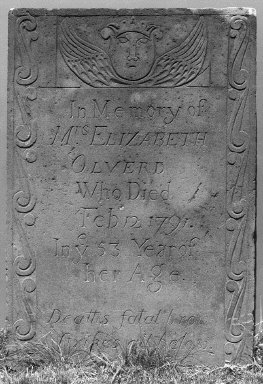 In Memory of
Mrs ELIZABETH
OLVERD
Who Died
Feb 12 1791
In ye 53 Year of
her Age
Deaths fatal